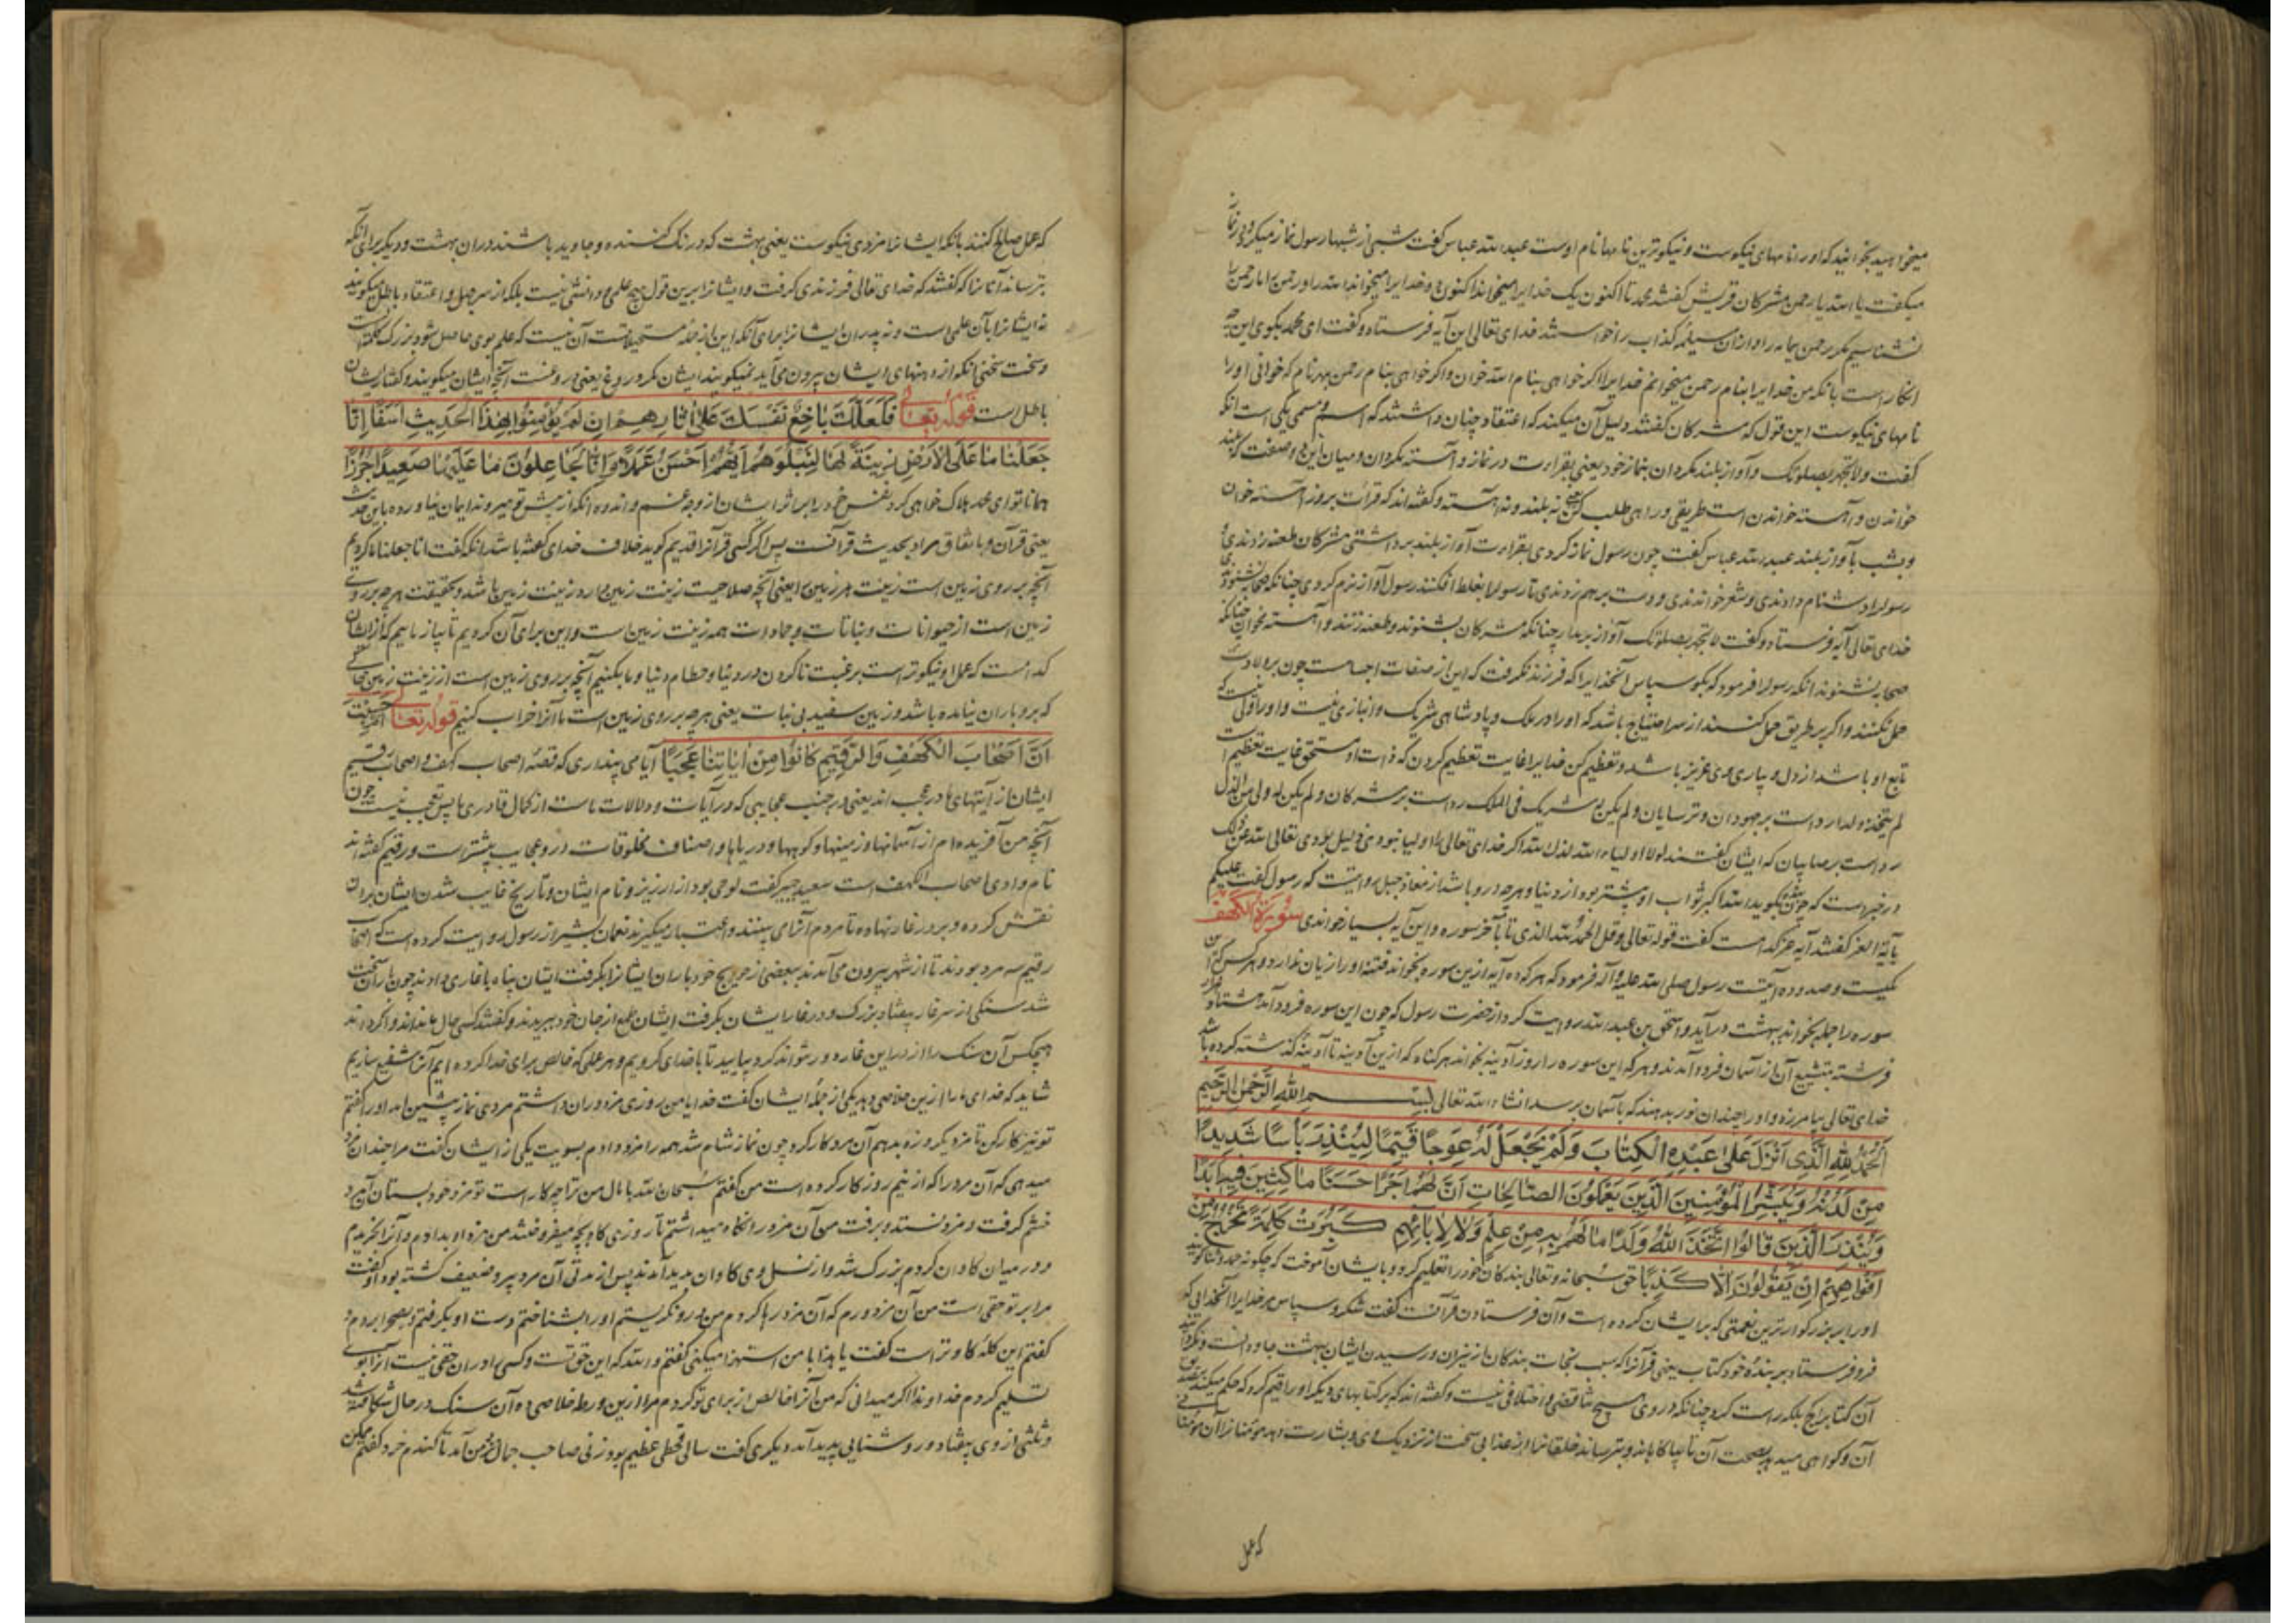 میخواهید بخوانید که او را نامهای نیکوست و نیکوترین نامها نام اوست عبد الله عباس گفت شبی از شبها رسول نماز میکرد و در نماز
میگفت یا الله یا رحمن مشرکان قریش گفتند محمد تا اکنون یک خدایرا میخواند اکنون دو خدایرا میخواند الله را و رحمن را ما رحمن را
نشناسیم مگر رحمن یمامه را و ازان مسیلمه کذاب را خواستند خدای تعالی این آیه فرستاد و گفت ای محمد بگوی این چه
انکار است بانکه من خدایرا بنام رحمن میخوانم خدایرا اگر خواهی بنام الله خوان و اگر خواهی بنام رحمن بهر نام که خوانی او را
نامهای نیکوست این قول که مشرکان گفتند دلیل آن میکند که اعتقاد چنان داشتند که اسم و مسمی یکی است انکه
گفت ولا تجهر بصلوتک و آواز بلند مگردان بنماز خود یعنی بقراءت در نماز و آهسته مگردان و میان این دو صفت که بلند
خواندن و آهسته خواندن است طریقی و راهی طلب کن یعنی نه بلند و نه آهسته و گفته اند که قرائت بروز آهسته خوان
و بشب بآواز بلند عبد الله عباس گفت چون رسول نماز کردی بقراءت آواز بلند برداشتی مشرکان طعنه زدندی و
رسولرا دشنام دادندی و شعر خواندندی و دست بر هم زدندی تا رسولرا بغلط افکنند رسول آواز نرم کردی چنانکه صحابه نشنودندی
خدای تعالی آیه فرستاد و گفت لا تجهر بصلوتک آواز بر مدار چنانکه مشرکان بشنوند و طعنه زنند و آهسته مخوان چنانکه
صحابه نشنوند انکه رسولرا فرمود که بگو سپاس آنخدایرا که فرزند نگرفت که این از صفات اجسامست چون بر ولادت
حمل نکنند و اگر بر طریق حمل کنند از سر احتیاج باشد که او را در ملک و پادشاهی شریک و انبازی نیست و او را قولی نیست که
تابع او باشد از دل و یاری وی عزیز باشد و تعظیم کن خدایرا غایت تعظیم کردن که ذات او مستحق غایت تعظیم است
لم یتخذ ولدا رد است بر جهودان و ترسایان و لم یکن له شریک فی الملک رد است بر مشرکان و لم یکن له ولی من الذل
رد است بر صابیان که ایشان گفتند لولا اولیاء الله لذل الله اگر خدای تعالی را اولیا نبودی ذلیل بودی تعالی الله عن ذلک
در خبر است که چون بنده بگوید الله اکبر ثواب او بیشتر بود از دنیا و هر چه درو باشد از معاذ جبل روایتست که رسول گفت علیکم
بآیة العز گفتند آیه عز کدام است گفت قوله تعالی و قل الحمد لله الذی تا بآخر سوره و این آیه بسیار خواندی سورة الکهف
مکیست و صد و ده آیتست رسول صلی الله علیه و آله فرمود که هر که ده آیه ازین سوره بخواند فتنه او را زیان ندارد و هر کس که این
سوره را جمله بخواند ببهشت در آید و اسحق بن عبد الله روایت کرد از حضرت رسول که چون این سوره فرود آمد هشتاد هزار
فرشته بتشییع آن از آسمان فرود آمدند و هر که این سوره را روز آدینه بخواند هر گناه که ازین آدینه تا آدینه گذشته کرده باشد
خدای تعالی بیامرزد و او را چندان نور بدهند که بآسمان برسد انشاء الله تعالی بسم الله الرحمن الرحیم
اَلْحَمْدُ لِلّٰهِ الَّذِی اَنْزَلَ عَلٰی عَبْدِهِ الْکِتٰابَ وَلَمْ یَجْعَلْ لَهُ عِوَجًا قَیِّمًا لِیُنْذِرَ بَأْسًا شَدِیدًا
مِنْ لَدُنْهُ وَیُبَشِّرَ الْمُؤْمِنِینَ الَّذِینَ یَعْمَلُونَ الصّٰالِحٰاتِ اَنَّ لَهُمْ اَجْرًا حَسَنًا مٰاکِثِینَ فِیهِ اَبَدًا
وَیُنْذِرَ الَّذِینَ قٰالُوا اتَّخَذَ اللّٰهُ وَلَدًا مٰا لَهُمْ بِهِ مِنْ عِلْمٍ وَلٰا لِاٰبٰائِهِمْ کَبُرَتْ کَلِمَةً تَخْرُجُ مِنْ
اَفْوٰاهِهِمْ اِنْ یَقُولُونَ اِلّٰا کَذِبًا حق سبحانه و تعالی بندکان خود را تعلیم کرد و بایشان آموخت که چگونه حمد و ثنا گویند
او را بر بزرگوارترین نعمتی که بر ایشان کرده است و آن فرستادن قرآنست گفت شکر و سپاس مر خدایرا آنخدایی که
فرو فرستاد بر بنده خود کتاب یعنی قرآنرا که سبب نجات بندکان از نیران و رسیدن ایشان ببهشت جاودانست و نگردانید
آن کتابرا کج بلکه راست کرد چنانکه در وی هیچ تناقضی و اختلافی نیست و گفته اند که بر کتابهای دیگر او را قیم کرد که حکم میکند بصدق
آن و گواهی میدهد بصحت آن تا بیاگاهاند و بترساند خلقانرا از عذابی سخت از نزدیک وی و بشارت دهد مؤمنانرا آن مؤمنانی
که عمل
که عمل صالح کنند بانکه ایشانرا مزدی نیکوست یعنی بهشت که درنک کننده و جاوید باشند دران بهشت و دیگر برای آنکه
بترساند آنانرا که گفتند که خدای تعالی فرزندی گرفت و ایشانرا برین قول هیچ علمی و دانشی نیست بلکه از سر جهل و اعتقاد باطل میگویند
نه ایشانرا بآن علمی است و نه پدران ایشانرا برای آنکه این از جمله مستحیلاتست آن نیست که علم بوی حاصل شود بزرگ کلمه است
و سخت سخنی آنکه از دهنهای ایشان بیرون می آید نمیگویند ایشان مگر دروغ یعنی دروغست آنچه ایشان میگویند و گفتار ایشان
باطل است قوله تعالی فَلَعَلَّکَ بٰاخِعٌ نَفْسَکَ عَلٰی اٰثٰارِهِمْ اِنْ لَمْ یُؤْمِنُوا بِهٰذَا الْحَدِیثِ اَسَفًا اِنّٰا
جَعَلْنٰا مٰا عَلَی الْاَرْضِ زِینَةً لَهٰا لِنَبْلُوَهُمْ اَیُّهُمْ اَحْسَنُ عَمَلًا وَاِنّٰا لَجٰاعِلُونَ مٰا عَلَیْهٰا صَعِیدًا جُرُزًا
همانا تو ای محمد هلاک خواهی کرد نفس خود را بر اثر ایشان از وجه غم و اندوه آنکه از پیش تو میروند ایمان نیاورده باین حدیث
یعنی قرآن و باتفاق مراد بحدیث قرآنست پس اگر کسی قرآنرا قدیم گوید خلاف خدای گفته باشد آنکه گفت انا جعلنا ما کردیم
آنچه بر روی زمین است زینت مر زمین را یعنی آنچه صلاحیت زینت زمین دارد زینت زمین باشد و بحقیقت هر چه بر روی
زمین است از حیوانات و نباتات و جمادات همه زینت زمین است و این برای آن کردیم تا بیازماییم که از ایشان
کدامست که عمل او نیکوتر است برغبت ناکردن در دنیا و حطام دنیا و ما بکنیم آنچه بر روی زمین است از زینت زمین بجائی
که برو باران نیامده باشد و زمین سفید بی نبات یعنی هر چه بر روی زمین است ما آنرا خراب کنیم قوله تعالی اَمْ حَسِبْتَ
اَنَّ اَصْحٰابَ الْکَهْفِ وَالرَّقِیمِ کٰانُوا مِنْ اٰیٰاتِنٰا عَجَبًا آیا می پنداری که قصه اصحاب کهف و اصحاب رقیم
ایشان از آیتهای ما در عجب اند یعنی در جنب عجایبی که در آیات و دلالات ماست از کمال قادری ما پس عجب نیست چون
آنچه من آفریده ام از آسمانها و زمینها و کوهها و دریاها و اصناف مخلوقات درو عجایب بیشتر است و رقیم گفته اند
نام وادی اصحاب الکهف است سعید جبیر گفت لوحی بود از ارزیز و نام ایشان و تاریخ غایب شدن ایشان بران
نقش کرده و بر در غار نهاده تا مردم آنرا می بینند و اعتبار میگیرند نعمان بشیر از رسول روایت کرده است که اصحاب
رقیم سه مرد بودند تا از شهر بیرون می آمدند ببعضی از حوایج خود باران ایشانرا بگرفت ایشان پناه با غاری دادند چون باران سخت
شد سنگی از سر غار بیفتاد بزرگ و در غار ایشان بگرفت ایشان طمع از جان خود ببریدند و گفتند
هیچکس آن سنک را از در این غار دور نتواند کرد بیایید تا با خدای گرویم و هر عملی که خالص برای خدا کرده ایم آنرا شفیع سازیم
شاید که خدای ما را ازین خلاصی دهد یکی از جمله ایشان گفت خدایا من روزی مزدوران داشتم مردی نماز پیشین آمد او را گفتم
تو نیز کار کن تا مزد یکروزه بدهم آن مرد کار کرد چون نماز شام شد همه را مزد دادم بسویت یکی از ایشان گفت مرا چندان مزد
میدهی که آن مرد را که از نیم روز کار کرده است من گفتم سبحان الله با مال من ترا چه کار است تو مزد خود بستان آن مرد
خشم گرفت و مزد نستد و برفت من آن مزد را نگاه میداشتم تا روزی گاو بچه میفروختند من مزد او بدادم و آنرا بخریدم
و در میان گاوان کردم بزرگ شد و از نسل وی گاوان پدید آمدند پس از مدتی آن مرد پیر و ضعیف گشته بود و گفت
مرا بر تو حقی است من آن مزدورم که آن مزد رها کردم من درو نگریستم او را بشناختم دست او بگرفتم و بصحرا بردم و
گفتم این گله گاو تراست گفت یا هذا با من استهزا میکنی گفتم و الله که این حق تست و کسی را دران حقی نیست آنرا بوی
تسلیم کردم خداوندا اگر میدانی که من آنرا خالص از برای تو کردم مرا ازین ورطه خلاصی ده آن سنک در حال شکافته شد
و ثلثی از وی بیفتاد و روشنایی پدید آمد دیگری گفت سالی قحطی عظیم بود زنی صاحب جمال نزد من آمد تا گندم خرد گفتم